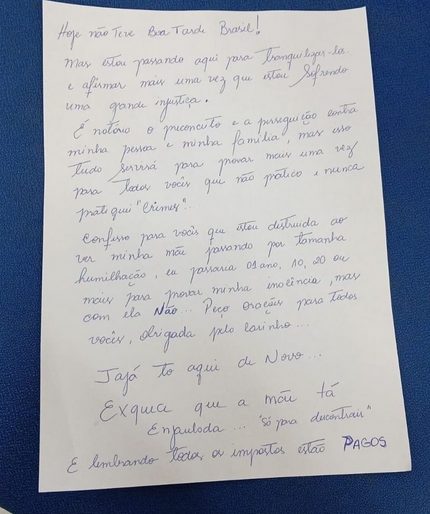 Hoje não teve Boa Tarde Brasil!
Mas estou passando aqui para tranquilizar-los
e afirmar mais uma vez que estou sofrendo
uma grande injustiça.
É notório o preconceito e a perseguição contra
minha pessoa e minha família, mas isso
tudo servirá para provar mais uma vez
para todos vocês que não pratico e nunca
pratiquei "Crimes"...
Confesso para vocês que estou distruida ao
ver minha mãe passando por tamanha
humilhação, eu passaria 01 ano, 10, 20 ou
mais para provar minha inocência, mas
com ela Não... Peço orações para todos
vocês, obrigada pelo carinho...
Jajá to aqui de Novo...
Exquea que a mãe tá
Enjaulada... "só para descontrair"
E lembrando todos os impostos estão PAGOS